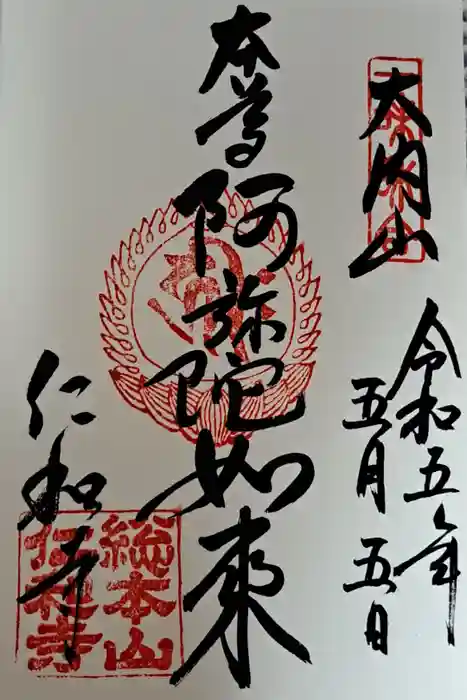 大内山
令和五年
五月五日
本尊
阿弥陀如来
仁和寺
総本山
仁和寺